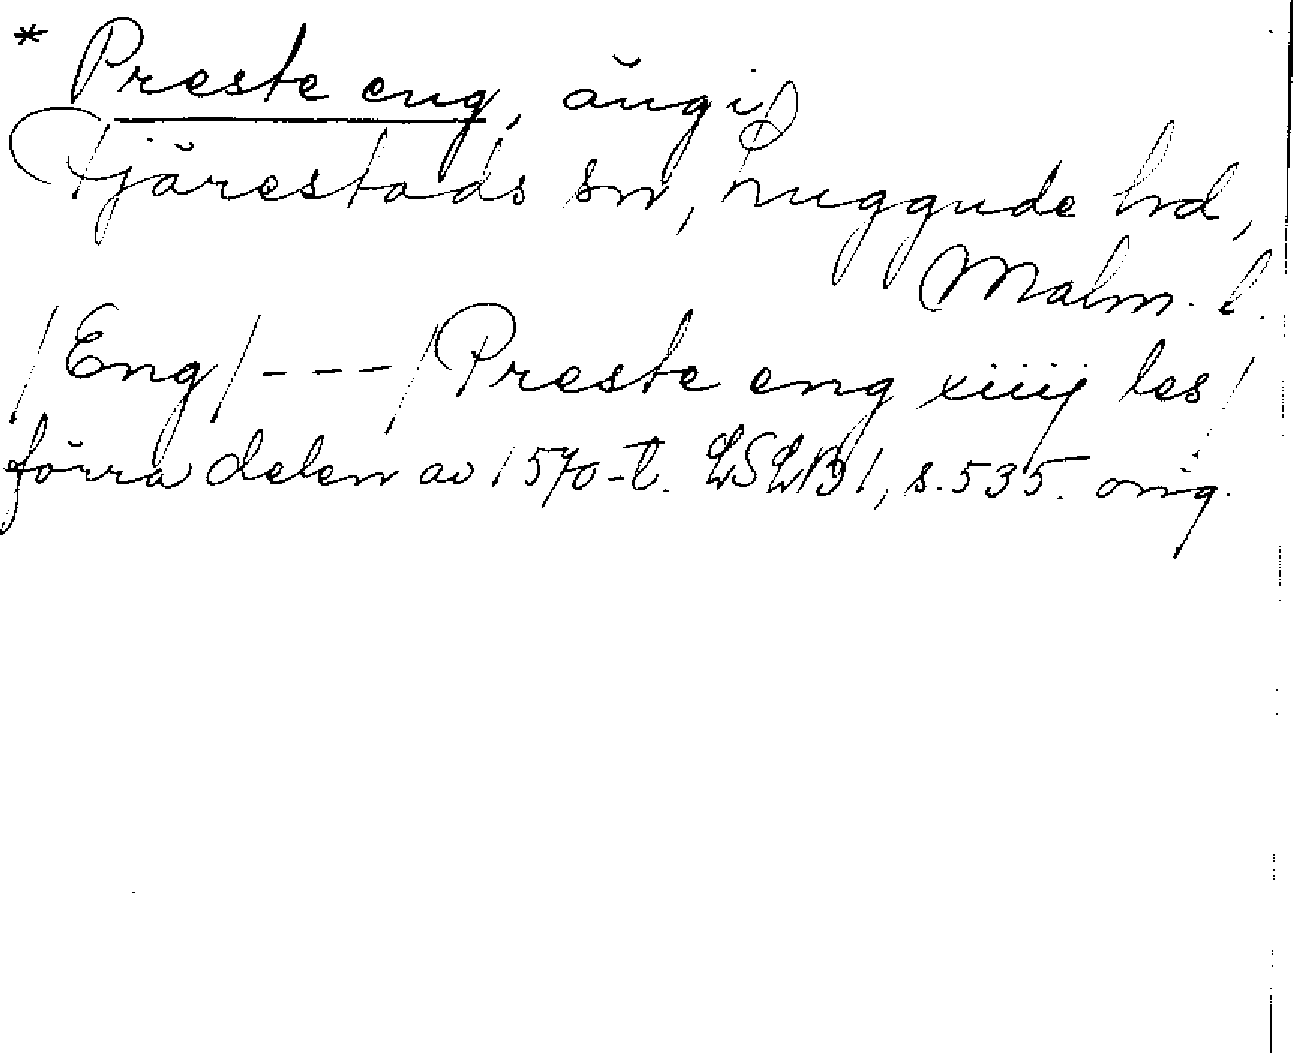 * Preste eng, äng i
Tjärestads sn, Luggude hd,
Malm. l.
/Eng/---/Preste eng xiiij les/
förra delen av 1570-t. LSLB1, s. 535. orig.